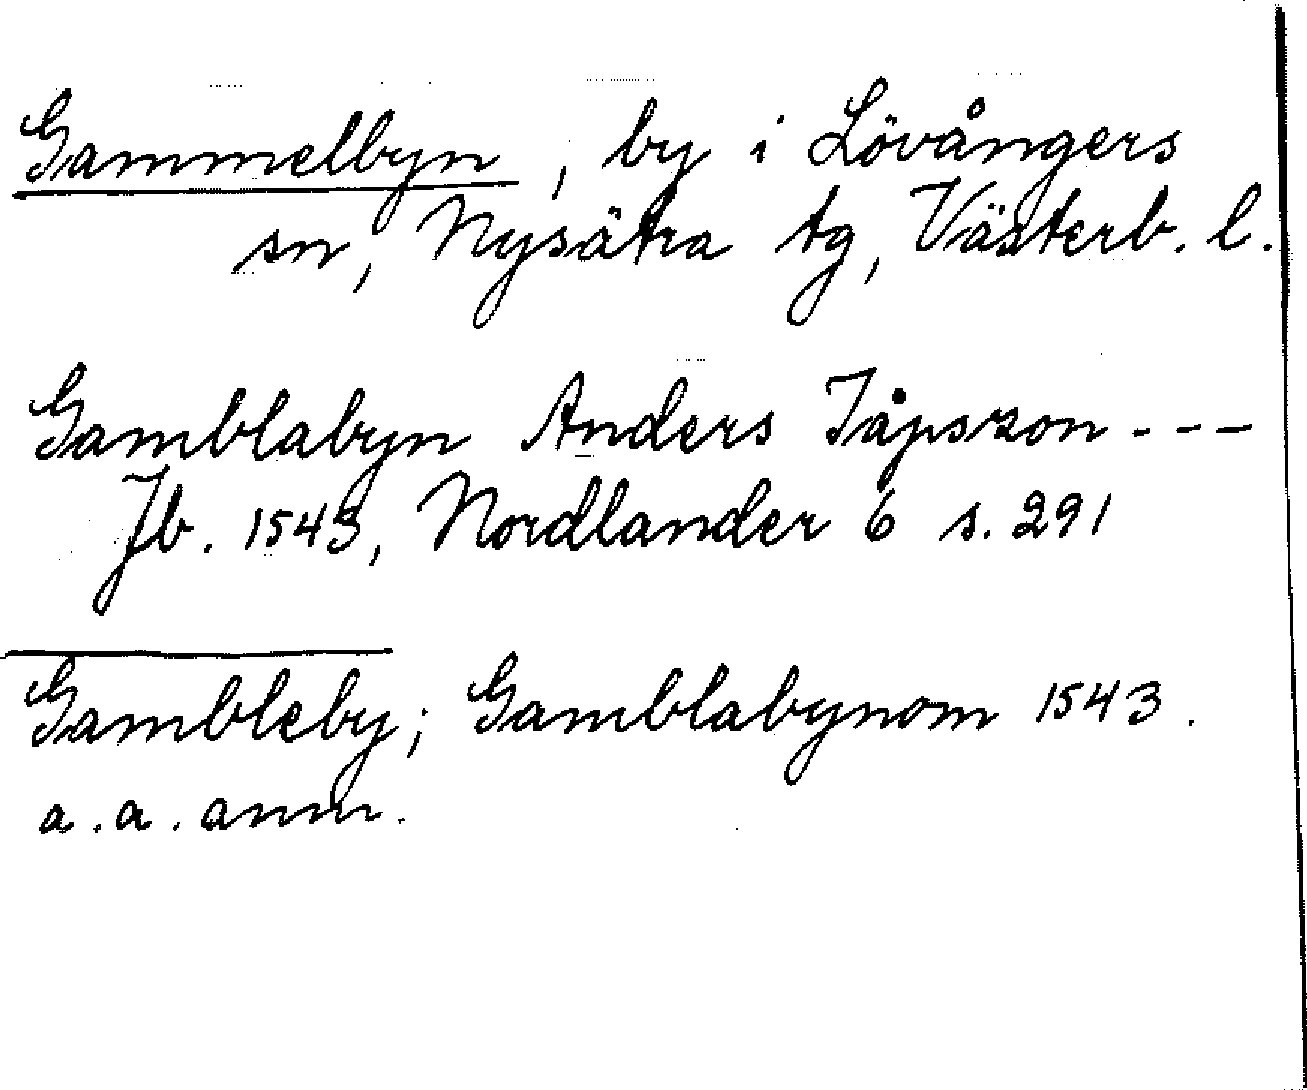 Gammelbyn, by i Lövångers
sn, Nysätra tg, Västerb. l.
Gamblabyn Anders Jåpsson ---
Jb. 1543, Nordlander 6 s. 291
Gambleby; Gamblabynom 1543.
a.a. anm.